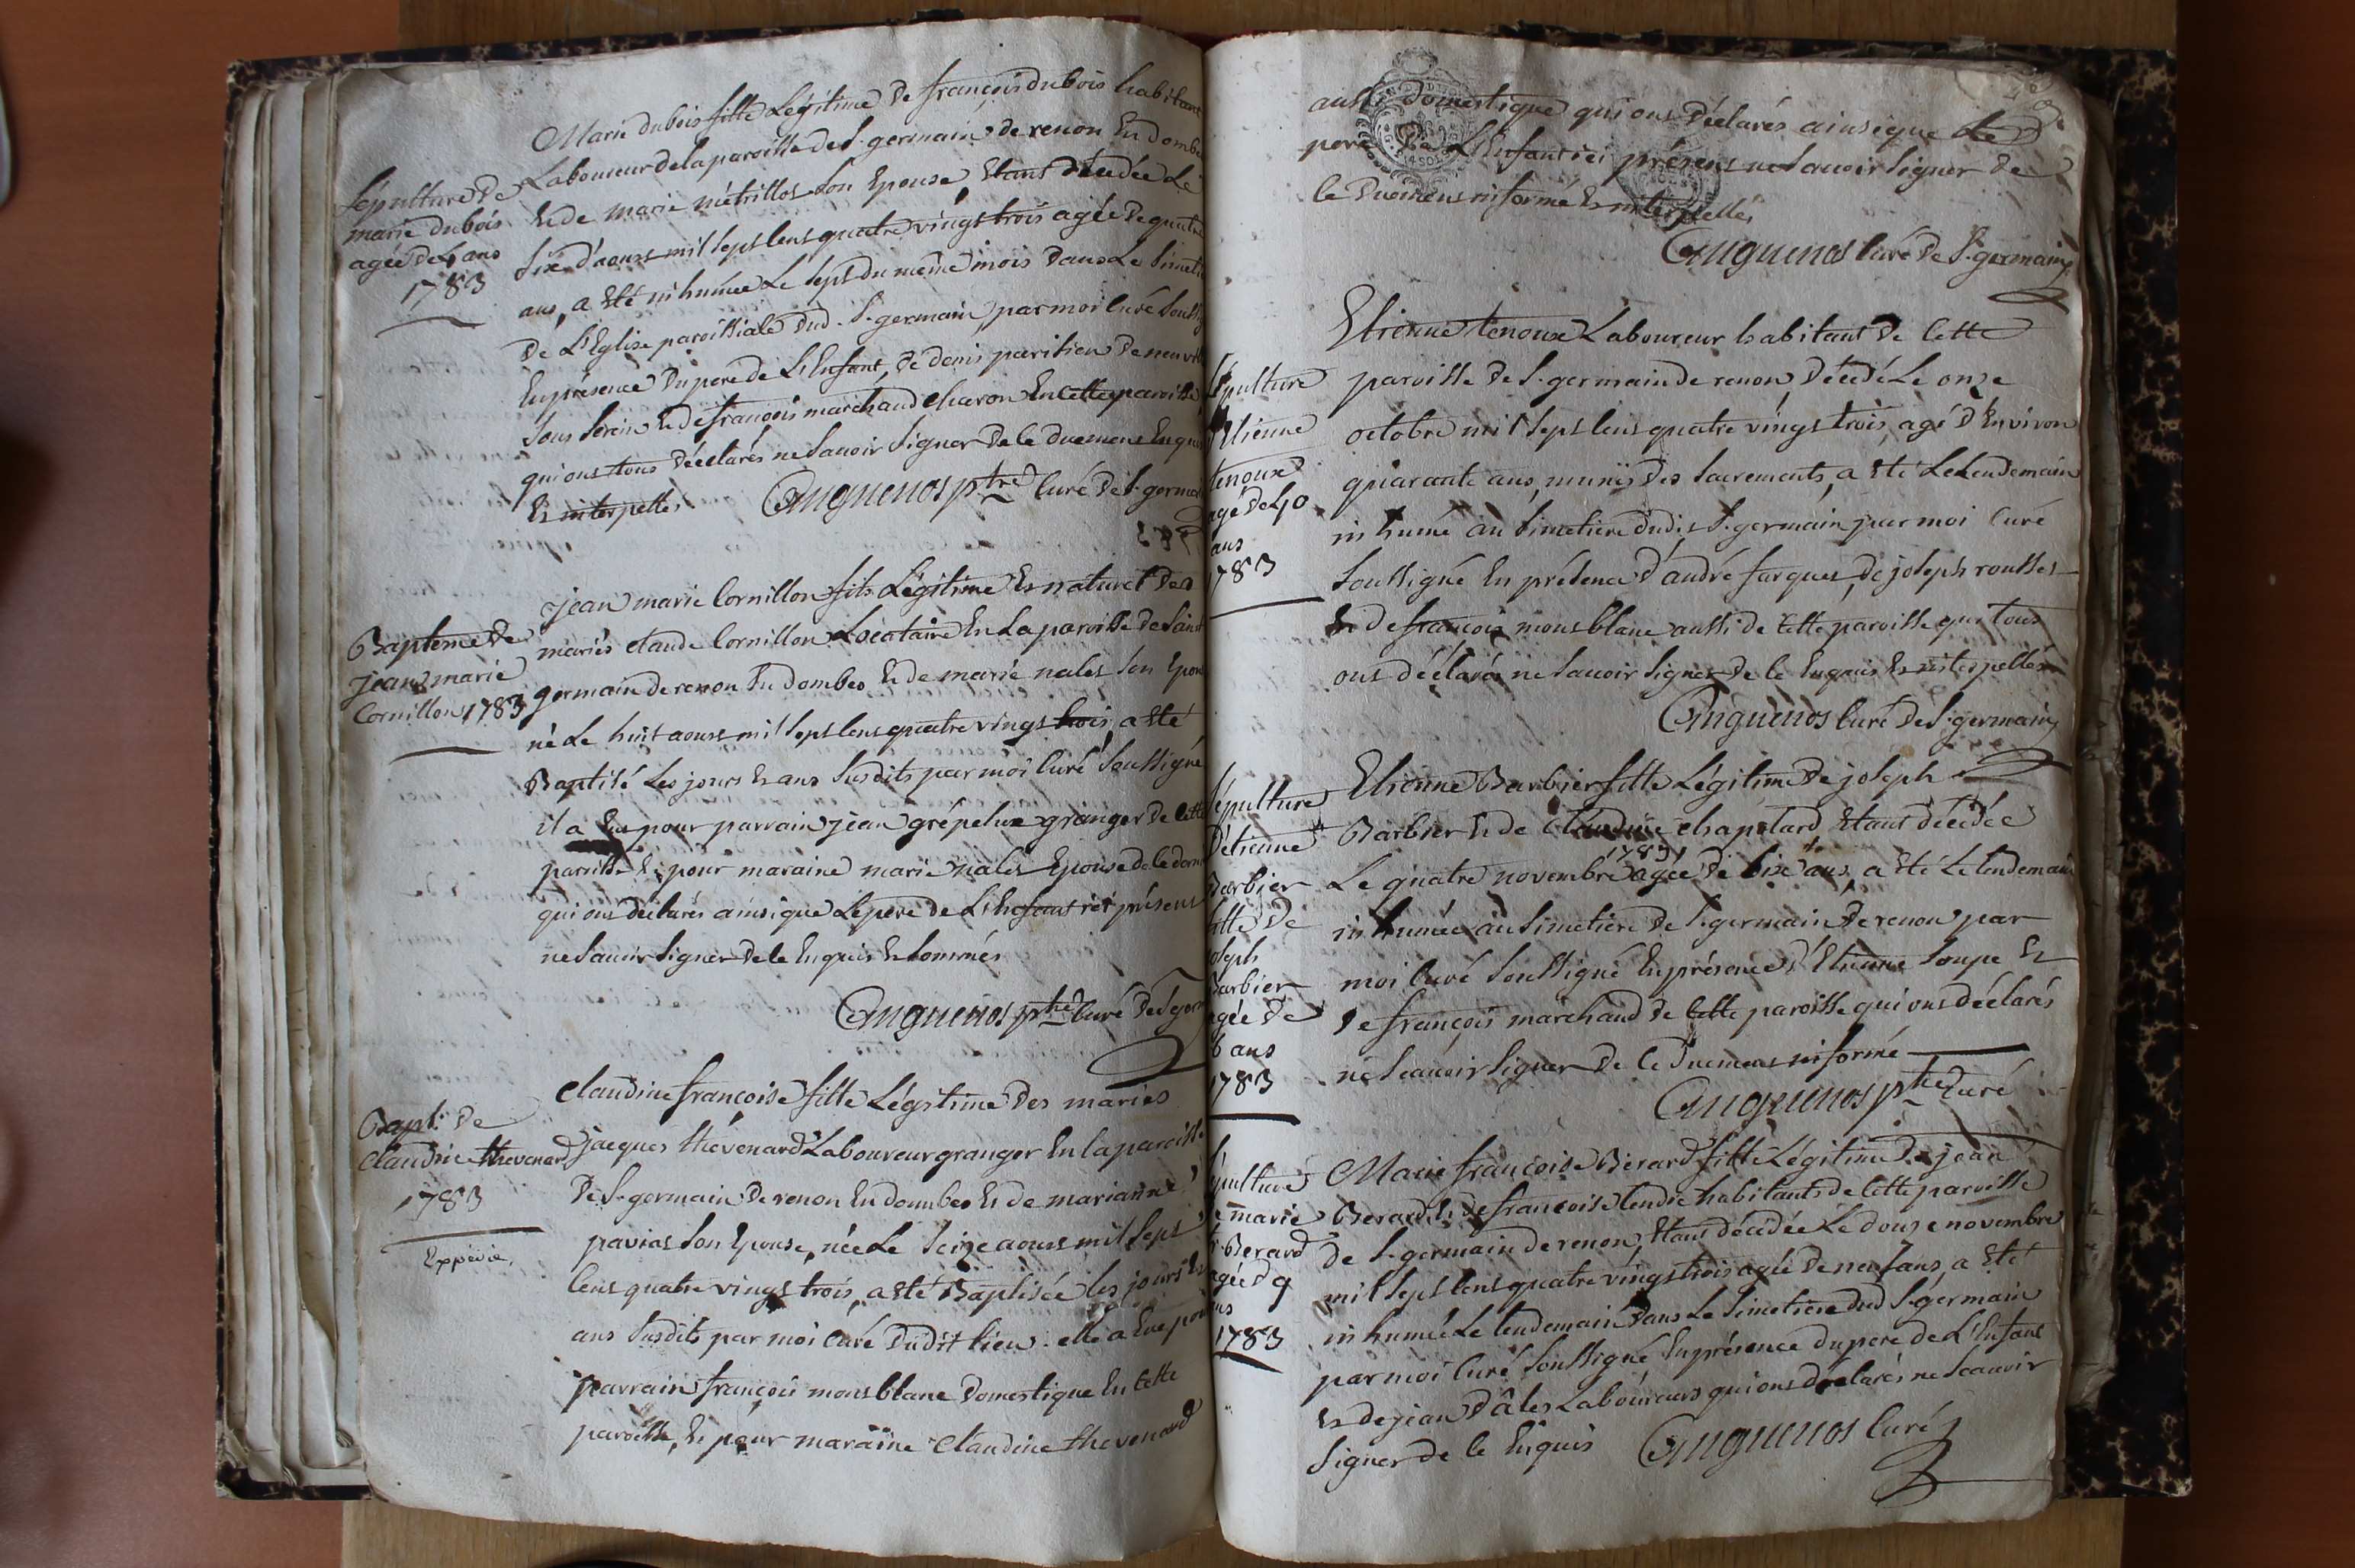 Sépulture de
marie dubois
agée de 4 ans
1783
Marie dubois fille Légitime de françois dubois habitant
Laboureur de la paroisse de S. germain de renon En dombe
Et de marie métrillot son Epouse, Etant décédée Le
six d'aoust mil sept cent quatre vingt trois agée de quatre
ans, a Eté inhumée Le sept du même mois dans Le simeti
de L'Eglise paroissiale dud. S. germain par moi Curé souss
En présence du pere de L'Enfant, de denis parisien de neuvill
Et de françois marchand charon En cette paroisse
qui ont tous déclarés ne savoir signer de ce duement Enqui
Et interpellés
Cuguenos ptre Curé de S. germa
Baptême de
jean marie
Cornillon 1783
jean marie Cornillon fils Légitime Et naturel des
mariés claude Cornillon Locataire En La paroisse de saint
germain de renon En dombes Et de marie nalet son Epou
né Le huit aoust mil sept cent quatre vingt trois, a Eté
Baptisé Les jours Et ans susdits par moi Curé soussigné
il a Eu pour parrain jean grépelux granger de cette
paroisse Et pour maraine marie nalet Epouse de ce dern
qui ont déclarés ainsi que Le pere de L'Enfant ici présent
ne savoir signer de ce Enquis Et sommés
Cuguenos ptre Curé de S. germ
Bapt. de
claudine thevenard
1783
Expédié
claudine françoise fille Légitime des mariés
jacques thévenard Laboureur granger En la paroisse
de S. germain de renon En dombes Et de marianne
pavias son Epouse, née Le seize aoust mil sept
cent quatre vingt trois, a Eté Baptisée les jours Et
ans susdits par moi Curé dudit lieu. elle a Eue pour
parrain françois mont blanc domestique En cette
paroisse, Et pour maraine claudine thevenard
aussi domestique qui ont déclarés ainsi que Le
pere de L'Enfant ici présent ne savoir signer de
ce duement informé Et interpellés
Cuguenos Curé de S. germain
Sépulture
d'Etienne
tenoux
agé de 40
ans
1783
Etienne tenoux Laboureur habitant de cette
paroisse de S. germain de renon décédé Le onze
octobre mil sept cent quatre vingt trois agé d'Environ
quarante ans, munis des sacrements, a Eté Le Lendemain
inhumé au simetiere dudit S. germain par moi Curé
soussigné En présence d'andré farques, de joseph rousset
Et de françois mont blanc aussi de cette paroisse qui tous
ont déclarés ne savoir signer de ce Enquis Et interpellés
Cuguenos Curé de S. germain
Sépulture
d'étienne
Barbier
fille de
joseph
Barbier
agée de
6 ans
1783
Etienne Barbier fille Légitime de joseph
Barbier Et de claudine chapelard Etant décédée
1783
Le quatre novembre agée de six ans, a Eté Le lendemain
inhumée au simetiere de S. germain de renon par
moi Curé soussigné En présence d'Etienne soupe Et
de françois marchand de cette paroisse qui ont déclarés
ne scavoir signer de ce duement informé
Cuguenos ptre Curé
Sépulture
de marie
f. Berard
agée de 9
ans
1783
Marie françoise Berard fille Légitime de jean
Berard Et de françoise tendre habitants de cette paroisse
de S. germain de renon, Etant décédée Le douze novembre
mil sept cent quatre vingt trois agée de neuf ans, a Eté
inhumée Le lendemain dans Le simetiere dud S. germain
par moi Curé soussigné En présence du pere de L'Enfant
Et de jean dâles Laboureurs qui ont déclarés ne scavoir
signer de ce Enquis
Cuguenos Curé